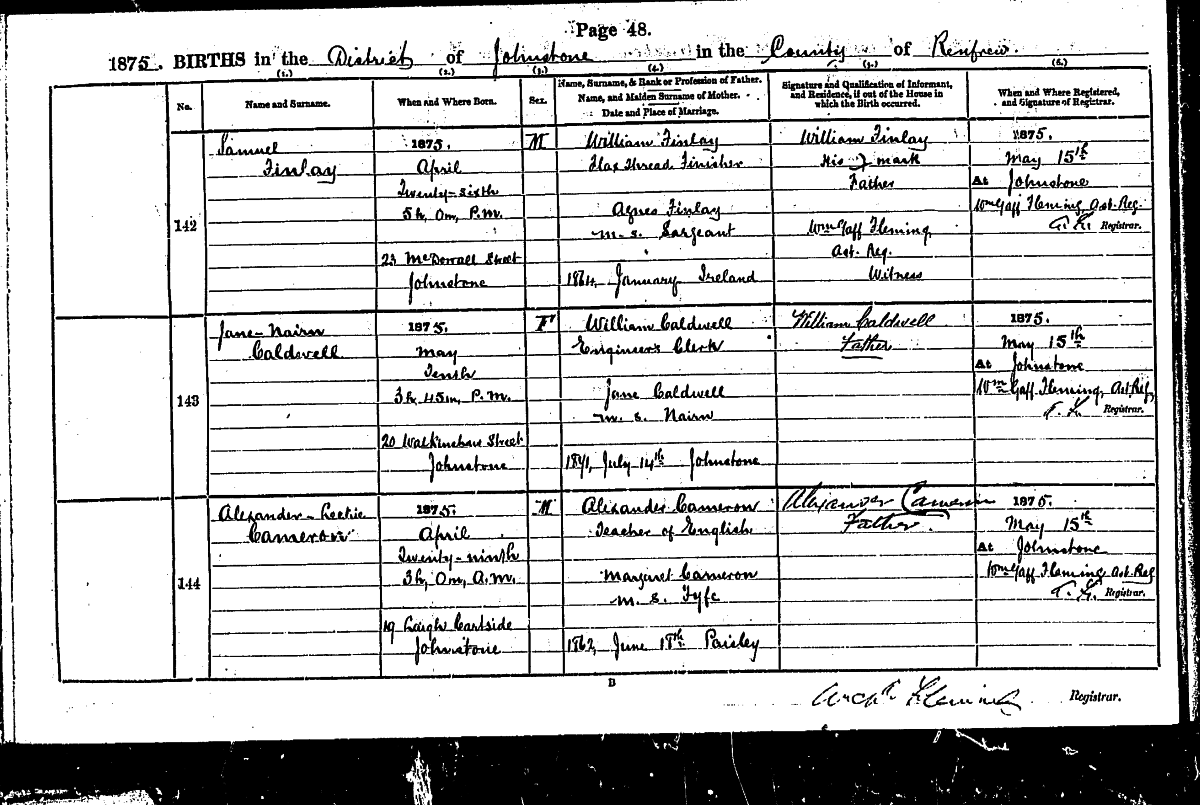 Page 48.
1875. BIRTHS in the District of Johnstone in the County of Renfrew.
(1.) (2.) (3.) (4.) (5.) (6.)
No.
Name and Surname.
When and Where Born.
Sex.
Name, Surname, & Rank or Profession of Father.
Name, and Maiden Surname of Mother.
Date and Place of Marriage.
Signature and Qualification of Informant,
and Residence, if out of the House in
which the Birth occurred.
When and Where Registered,
and Signature of Registrar.
142
Samuel
Finlay
1875.
April
Twenty-sixth
5h, 0m, P.M.
23 McDowall Street
Johnstone
M
William Finlay
Flax Thread Finisher
Agnes Finlay
m. s. Sargeant
1864, January Ireland
William Finlay
His mark
Father
Wm Gaff Fleming
Ast. Reg.
Witness
1875.
May 15th
At Johnstone
Wm Gaff Fleming Ast. Reg.
Registrar.
143
Jane-Nairn
Caldwell
1875.
May
Tenth
3h 45m, P.M.
20 Walkinshaw Street
Johnstone
F
William Caldwell
Engineer's Clerk
Jane Caldwell
m. s. Nairn
1871, July 14th Johnstone
William Caldwell
Father
1875.
May 15th
At Johnstone
Wm Gaff Fleming, Ast. Reg.
Registrar.
144
Alexander-Leckie
Cameron
1875.
April
Twenty-ninth
3h, 0m, A.M.
19 Laigh Cartside
Johnstone
M
Alexander Cameron
Teacher of English
Margaret Cameron
m. s. Fyfe
1862, June 18th Paisley
Alexander Cameron
Father.
1875.
May 15th
At Johnstone
Wm Gaff Fleming Ast. Reg
Registrar.
B
Archd Fleming Registrar.